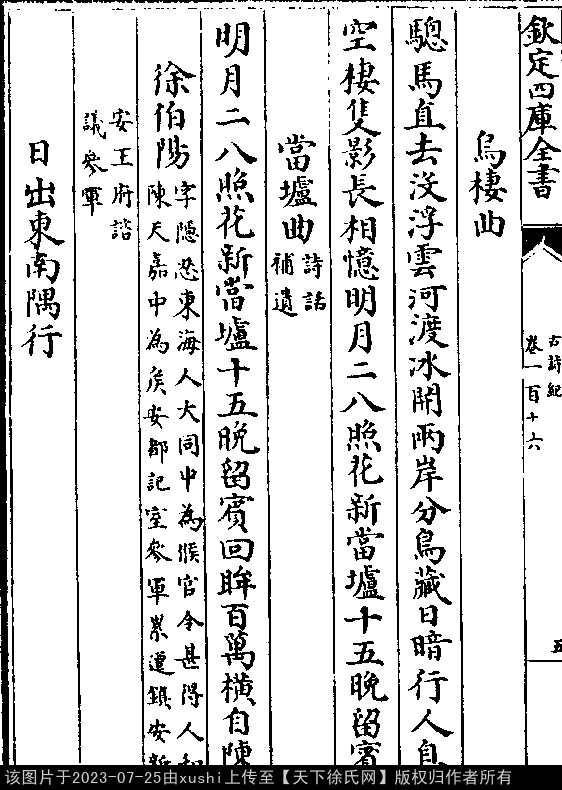 欽定四庫全書
古詩紀
卷一百十六
五
烏棲曲
驄馬直去没浮雲河渡冰開兩岸分烏藏日暗行人息
空棲隻影長相憶明月二八照花新當壚十五晚留賓
當壚曲詩話補遺
明月二八照花新當壚十五晚留賓回眸百萬橫自陳
徐伯陽字隱忍東海人大同中為候官令甚得人和
陳天嘉中為侯安都記室參軍累遷鎮安新
安王府諮
議參軍
日出東南隅行
该图片于2023-07-25由xushi上传至【天下徐氏网】版权归作者所有